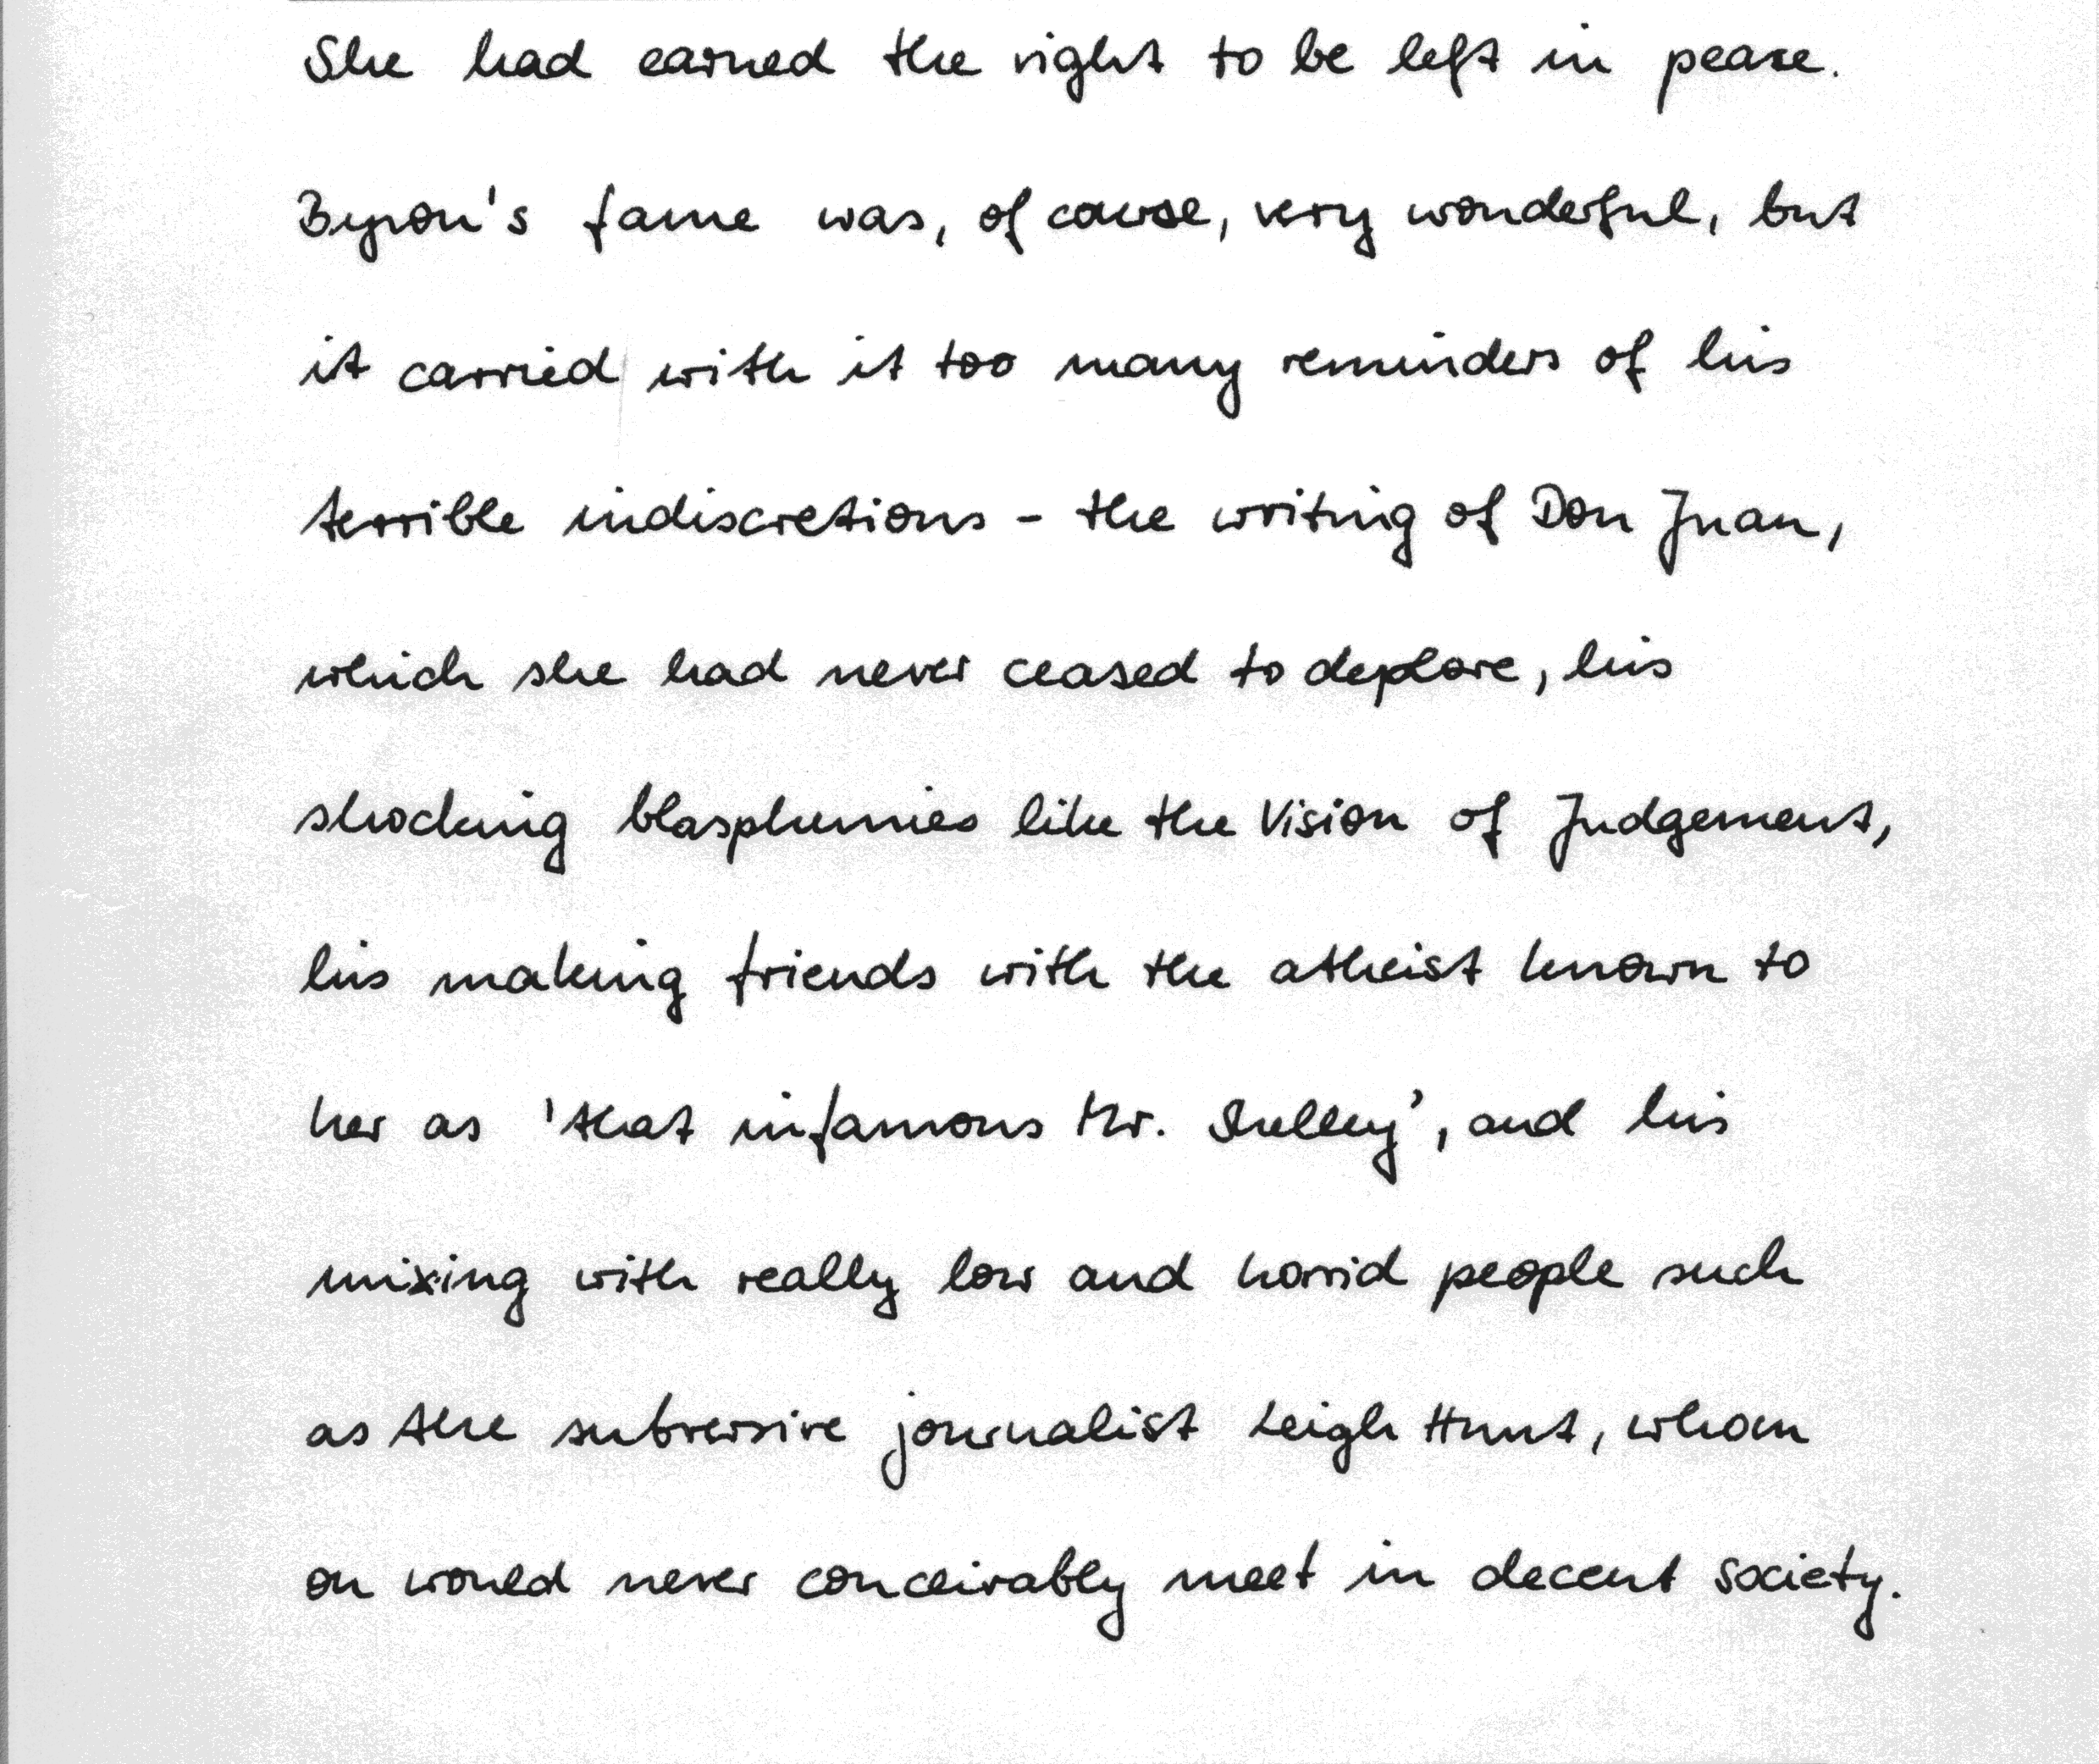 She had earned the right to be left in pease.
Byron's fame was, of course, very wonderful, but
it carried with it too many reminders of his
terrible indiscretions - the writing of Don Juan,
which she had never ceased to deplore, his
shocking blasphemies like the Vision of Judgement,
his making friends with the atheist known to
her as 'that infamous Mr. Shelley', and his
mixing with really low and horrid people such
as the subversive journalist Leigh Hunt, whom
on would never conceivably meet in decent society.